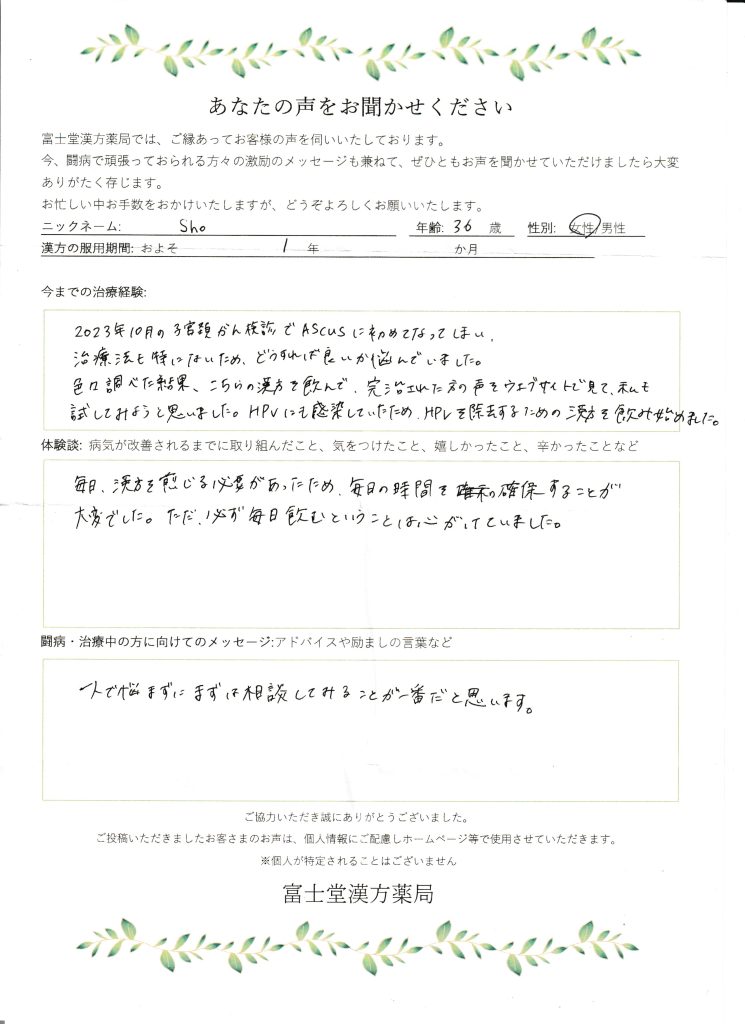 あなたの声をお聞かせください
富士堂漢方薬局では、ご縁あってお客様の声を伺いいたしております。
今、闘病で頑張っておられる方々の激励のメッセージも兼ねて、ぜひともお声を聞かせていただけましたら大変
ありがたく存じます。
お忙しい中お手数をおかけいたしますが、どうぞよろしくお願いいたします。
ニックネーム: Sho 年齢: 36 歳 性別: 女性/男性
漢方の服用期間: およそ 1 年 か月
今までの治療経験:
2023年10月の子宮頚がん検診でASCUSに初めてなってしまい、
治療法も特にないため、どうすれば良いか悩んでいました。
色々調べた結果、こちらの漢方を飲んで、完治された方の声をウェブサイトで見て、私も
試してみようと思いました。HPVにも感染していたため、HPVを除去するための漢方を飲み始めました。
体験談: 病気が改善されるまでに取り組んだこと、気をつけたこと、嬉しかったこと、辛かったことなど
毎日、漢方を煎じる必要があったため、毎日の時間を確保することが
大変でした。ただ、必ず毎日飲むということは心がけていました。
闘病・治療中の方に向けてのメッセージ:アドバイスや励ましの言葉など
一人で悩まずにまずは相談してみることが一番だと思います。
ご協力いただき誠にありがとうございました。
ご投稿いただきましたお客さまのお声は、個人情報にご配慮しホームページ等で使用させていただきます。
※個人が特定されることはございません
富士堂漢方薬局